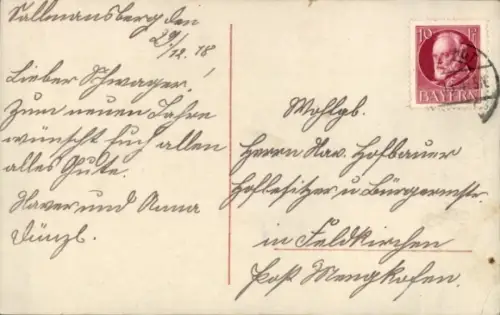 Sallmannsberg den
29/12. 18
Lieber Schwager!
Zum neuen Jahre
wünscht Euch allen
alles Gute.
Xaver und Anna
Dünzl.
10 Pf
BAYERN
Wohlgb.
Herrn Xav. Hofbauer
Hofbesitzer u Bürgermstr.
in Feldkirchen
Post Mengkofen.